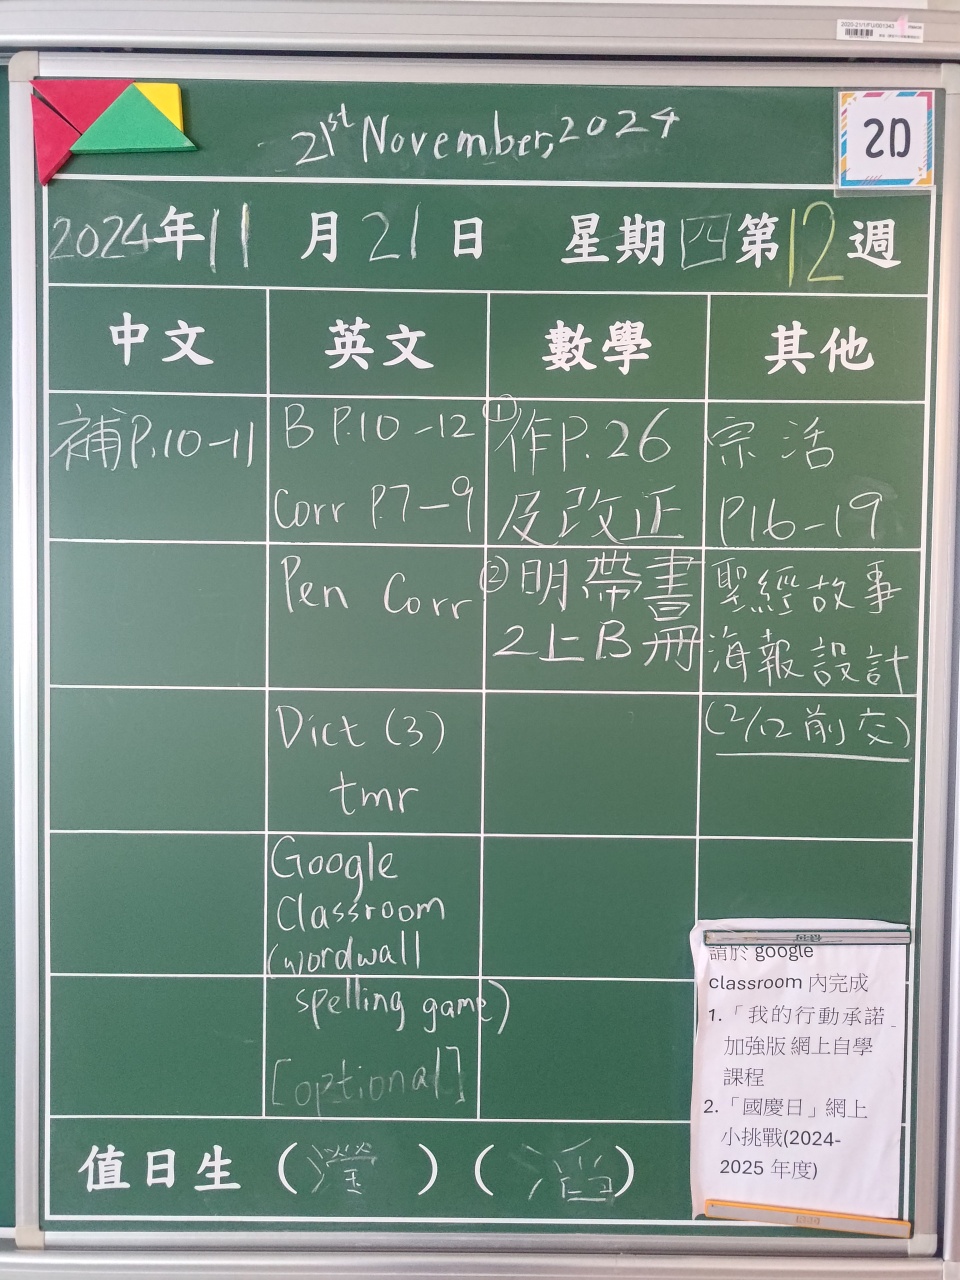 21st November, 2024
2D
2024年11月21日 星期四第12週
中文
英文
數學
其他
補P.10-11
B P.10-12
Corr P.7-9
Pen Corr
Dict (3)
tmr
Google
Classroom
(wordwall
spelling game)
[optional]
①作P.26
及改正
②明帶書
2上B冊
宗活
P16-19
聖經故事
海報設計
(2/12前交)
請於 google
classroom 內完成
1.「我的行動承諾
加強版 網上自學
課程
2.「國慶日」網上
小挑戰(2024-
2025 年度)
值日生 ( ) ( )